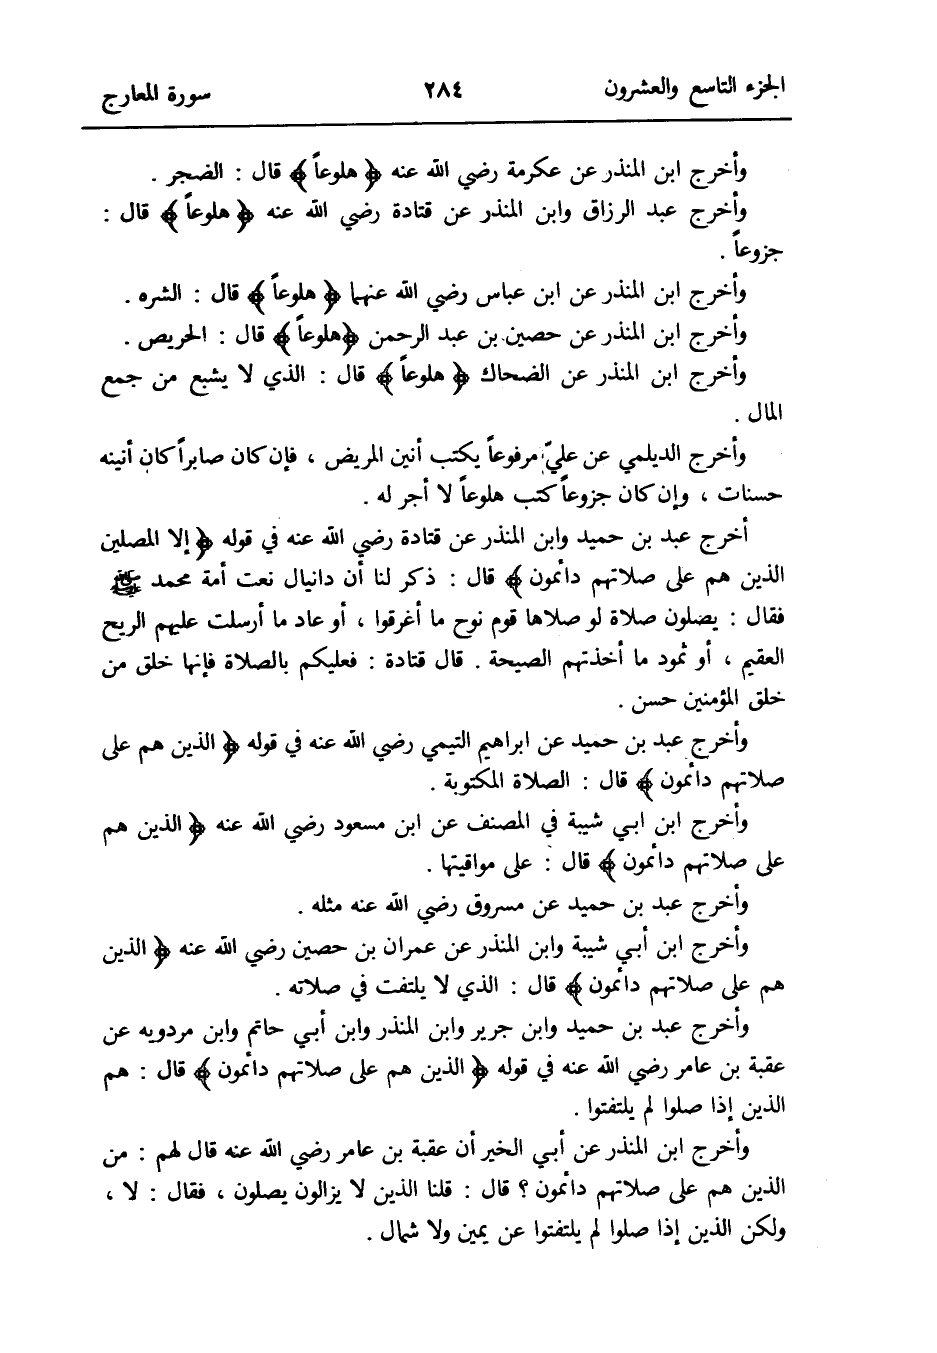 الجزء التاسع والعشرون ٢٨٤ سورة المعارج
وأخرج ابن المنذر عن عكرمة رضي الله عنه ﴿ هلوعاً ﴾ قال : الضجر .
وأخرج عبد الرزاق وابن المنذر عن قتادة رضي الله عنه ﴿ هلوعاً ﴾ قال :
جزوعاً .
وأخرج ابن المنذر عن ابن عباس رضي الله عنهما ﴿ هلوعاً ﴾ قال : الشره .
وأخرج ابن المنذر عن حصين بن عبد الرحمن ﴿هلوعاً ﴾ قال : الحريص .
وأخرج ابن المنذر عن الضحاك ﴿ هلوعاً ﴾ قال : الذي لا يشبع من جمع
المال .
وأخرج الديلمي عن عليّ مرفوعاً يكتب أنين المريض ، فإن كان صابراً كان أنينه
حسنات ، وإن كان جزوعاً كتب هلوعاً لا أجر له .
أخرج عبد بن حميد وابن المنذر عن قتادة رضي الله عنه في قوله ﴿ إلا المصلين
الذين هم على صلاتهم دائمون ﴾ قال : ذكر لنا أن دانيال نعت أمة محمد ﷺ
فقال : يصلون صلاة لو صلاها قوم نوح ما أغرقوا ، أو عاد ما أرسلت عليهم الريح
العقيم ، أو ثمود ما أخذتهم الصيحة . قال قتادة : فعليكم بالصلاة فإنها خلق من
خلق المؤمنين حسن .
وأخرج عبد بن حميد عن ابراهيم التيمي رضي الله عنه في قوله ﴿ الذين هم على
صلاتهم دائمون ﴾ قال : الصلاة المكتوبة .
وأخرج ابن ابي شيبة في المصنف عن ابن مسعود رضي الله عنه ﴿ الذين هم
على صلاتهم دائمون ﴾ قال : على مواقيتها .
وأخرج عبد بن حميد عن مسروق رضي الله عنه مثله .
وأخرج ابن أبي شيبة وابن المنذر عن عمران بن حصين رضي الله عنه ﴿ الذين
هم على صلاتهم دائمون ﴾ قال : الذي لا يلتفت في صلاته .
وأخرج عبد بن حميد وابن جرير وابن المنذر وابن أبي حاتم وابن مردويه عن
عقبة بن عامر رضي الله عنه في قوله ﴿ الذين هم على صلاتهم دائمون ﴾ قال : هم
الذين إذا صلوا لم يلتفتوا .
وأخرج ابن المنذر عن أبي الخير أن عقبة بن عامر رضي الله عنه قال لهم : من
الذين هم على صلاتهم دائمون ؟ قال : قلنا الذين لا يزالون يصلون ، فقال : لا ،
ولكن الذين إذا صلوا لم يلتفتوا عن يمين ولا شمال .